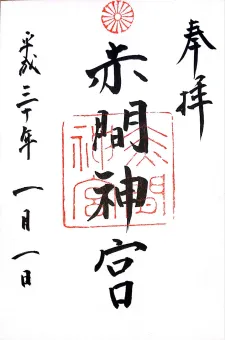 奉拝
赤間神宮
赤間
神宮
平成三十年 一月一日